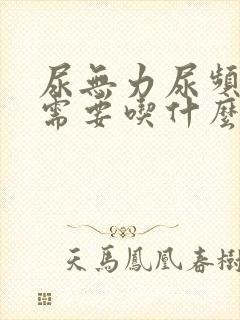 尿無力尿頻
需要喫什麼
天馬鳳凰春樹